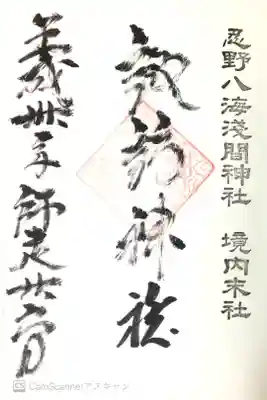 忍野八海淺間神社　境内末社
諏訪神社
平成卅年師走廿六日
CS CamScannerでスキャン